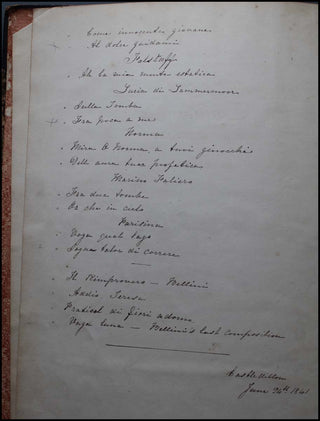 Come innocente giovane
Al dolce guidami
Falstaff
Ah la mia mente estatica
Lucia di Lammermoor
Sulla Tomba
Fra poco a me
Norma
Mira O Norma, a tuoi ginocchi
Dell aura tua profetica
Marino Faliero
Fra due tombe
Or che in cielo
Parisina
Voga qual lago
Sogna talor di correre
Il Rimprovero — Bellini
Addio Teresa
Prati di fiori adorni
Vaga luna — Bellini's last composition
June 24th 1841